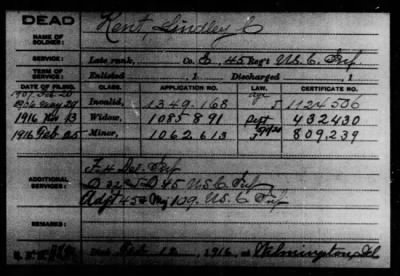 DEAD
NAME OF SOLDIER: Kent, Lindley C
SERVICE: Late rank, Co. E, 45 Reg't U.S.C. Inf
TERM OF SERVICE: Enlisted , 1 Discharged , 1
DATE OF FILING. CLASS. APPLICATION NO. LAW. CERTIFICATE NO.
1907 Feb 20
Invalid, 1349.168 1124506
1916 13 Widow, 1085891 432430
1916 Feb 25 Minor, 1062613 809,239
ADDITIONAL SERVICES: F. 4 Del. Inf
D 45 U.S.C. Inf
45 & 109. U.S.C. Inf
REMARKS:
Died Feb 12, 1916, at Wilmington, Del